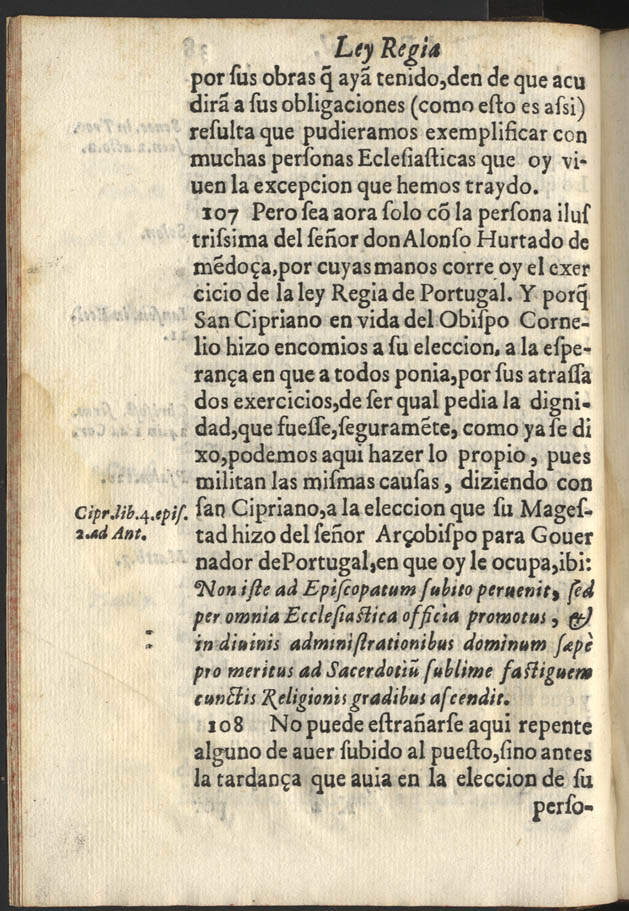 Ley Regia
por ſus obras q̃ ayã tenido,den de que acu
dirã a sus obligaciones (como eſto es aſsi)
reſulta que pudieramos exemplificar con
muchas perſonas Ecleſiaſticas que oy vi-
uen la excepcion que hemos traydo.
107 Pero ſea aora ſolo cõ la perſona iluſ
triſsima del ſeñor don Alonſo Hurtado de
mẽdoça,por cuyas manos corre oy el exer
cicio de la ley Regia de Portugal. Y porq̃
San Cipriano en vida del Obiſpo Corne-
lio hizo encomios a ſu eleccion, a la eſpe-
rança en que a todos ponia,por sus atraſſa
dos exercicios,de ſer qual pedia la digni-
dad,que fueſſe,ſeguramẽte, como ya ſe di
xo,podemos aqui hazer lo propio, pues
militan las miſmas cauſas, diziendo con
ſan Cipriano,a la eleccion que ſu Mageſ-
tad hizo del ſeñor Arçobiſpo para Gouer
nador de Portugal,en que oy le ocupa,ibi:
Non iſte ad Epiſcopatum ſubito peruenit, ſed
per omnia Eccleſiaſtica officia promotus, &
in diuinis adminiſtrationibus dominum ſæpè
pro meritus ad Sacerdotiũ ſublime faſtiguem
cunctis Religionis gradibus aſcendit.
108 No puede eſtrañarſe aqui repente
alguno de auer ſubido al pueſto,ſino antes
la tardança que auia en la eleccion de ſu
perſo-
Cipr.lib.4.epiſ.
2.ad Ant.